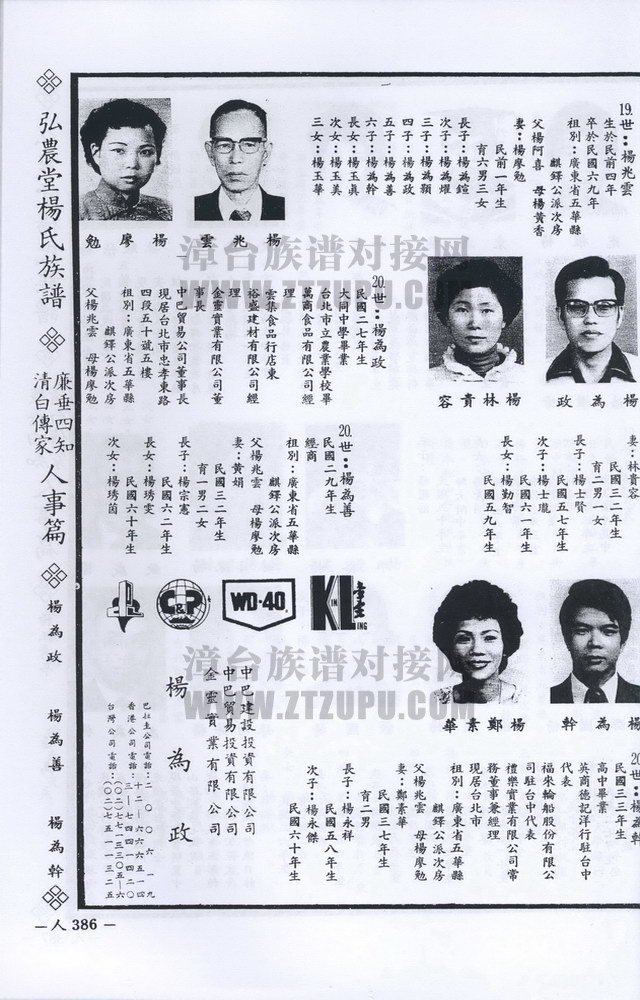 弘農堂楊氏族譜
廉垂四知
清白傳家
人事篇
楊為政
楊為善
楊為幹
19.世：楊兆雲
生於民前四年
卒於民國六九年
祖別：廣東省五華縣
麒鐸公派次房
父楊阿喜 母楊黃香
妻：楊廖勉
民前一年生
育六男三女
長子：楊為鎧
次子：楊為燿
三子：楊為顯
四子：楊為政
五子：楊為善
六子：楊為幹
長女：楊玉真
次女：楊玉美
三女：楊玉華
楊兆雲
楊廖勉
20.世：楊為政
民國二七年生
大同中學畢業
台北市立農業學校畢
萬商食品有限公司經
理
雲集食品行店東
裕盛建材有限公司經
理
金靈實業有限公司董
事長
中巴貿易公司董事長
現居台北市忠孝東路
四段五十號五樓
祖別：廣東省五華縣
麒鐸公派次房
父楊兆雲 母楊廖勉
楊為政
楊林貴容
妻：林貴容
民國三二年生
育二男一女
長子：楊士賢
民國五七年生
次子：楊士瓏
民國六一年生
長女：楊勤智
民國五九年生
20.世：楊為善
民國二九年生
經商
祖別：廣東省五華縣
麒鐸公派次房
父楊兆雲 母楊廖勉
妻：黃娟
民國三二年生
育一男二女
長子：楊宗憲
民國六二年生
長女：楊琇雯
民國六十年生
次女：楊琇茵
楊為幹
楊鄭素華
20世：楊為幹
民國三三年生
高中畢業
英商德記洋行駐台中
代表
福來輪船股份有限公
司駐台中代表
禮樂實業有限公司常
務董事兼經理
現居台北市
祖別：廣東省五華縣
麒鐸公派次房
父楊兆雲 母楊廖勉
妻：鄭素華
民國三七年生
育二男
長子：楊永祥
民國五八年生
次子：楊永傑
民國六十年生
C&P
WD-40
KL
KIN
LING
中巴建設投資有限公司
中巴貿易投資有限公司
金靈實業有限公司
楊為政
香港公司電話：三—七四四一四二〇
—人 386—
漳台族谱对接网
WWW.ZTZUPU.COM
漳台族谱对接网
WWW.ZTZUPU.COM